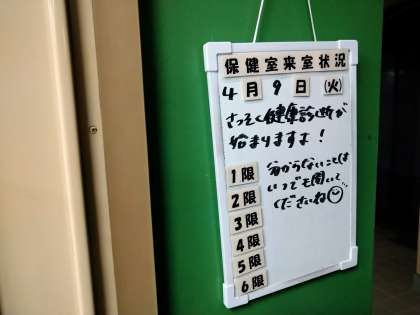 保健室来室状況
4月9日(火)
さっそく健康診断が
始まりますよ!
分からないことは
いつでも聞いて…
くださいね
1限
2限
3限
4限
5限
6限